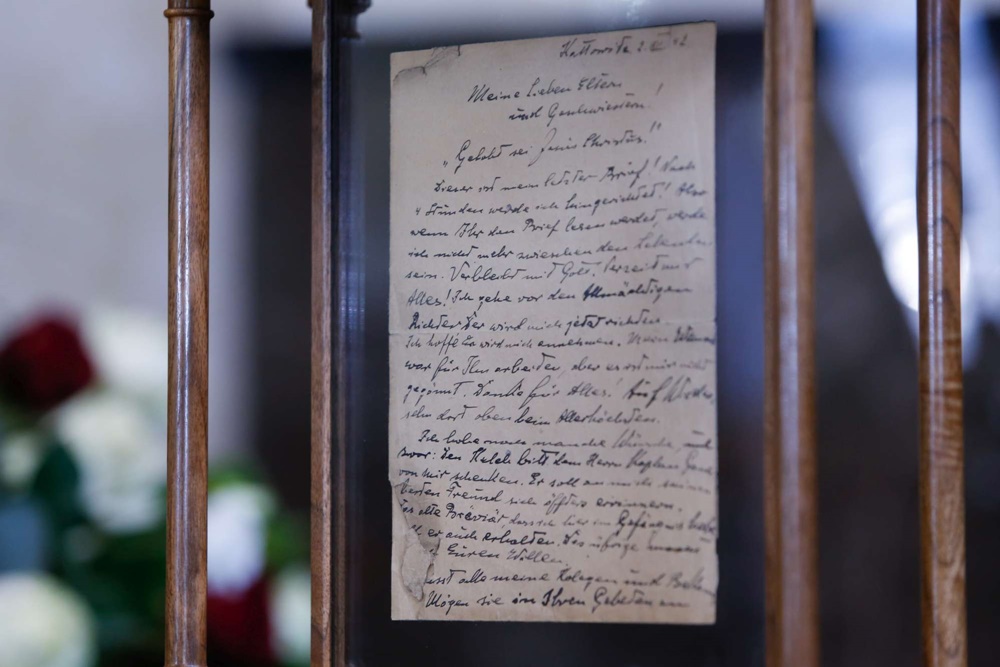 Kattowitz 2. XII 42
Meine lieben Eltern
und Geschwistern!
"Gelobt sei Jesus Christus!"
Dieser ist mein letzter Brief! Nach
4 Stunden werde ich hingerichtet! Also
wenn Ihr den Brief lesen werdet, werde
ich nicht mehr zwischen den Lebenden
sein. Verbleibt mit Gott. Verzeiht mir
Alles! Ich gehe vor den Allmächtigen
Richter. Der wird mich jetzt richten.
Ich hoffe Er wird mich annehmen. Mein
war für Ihn arbeiten, aber es ist mir nicht
gegönnt. Danke für Alles! Auf Wieder-
sehn dort oben beim Allerhöchsten.
Ich habe noch manche Wünsche, und
zwar: Den Kelch bitt dem Herrn Kaplan
von mir schenken. Er soll an mich seinen
besten Freund sich öffters errinnern.
Das alte Breviär, dass ich hier im Gefängnis
er auch erhalten. Das übrige
Euren Willen.
alle meine Kolegen und
Mögen sie in Ihren Gebeten